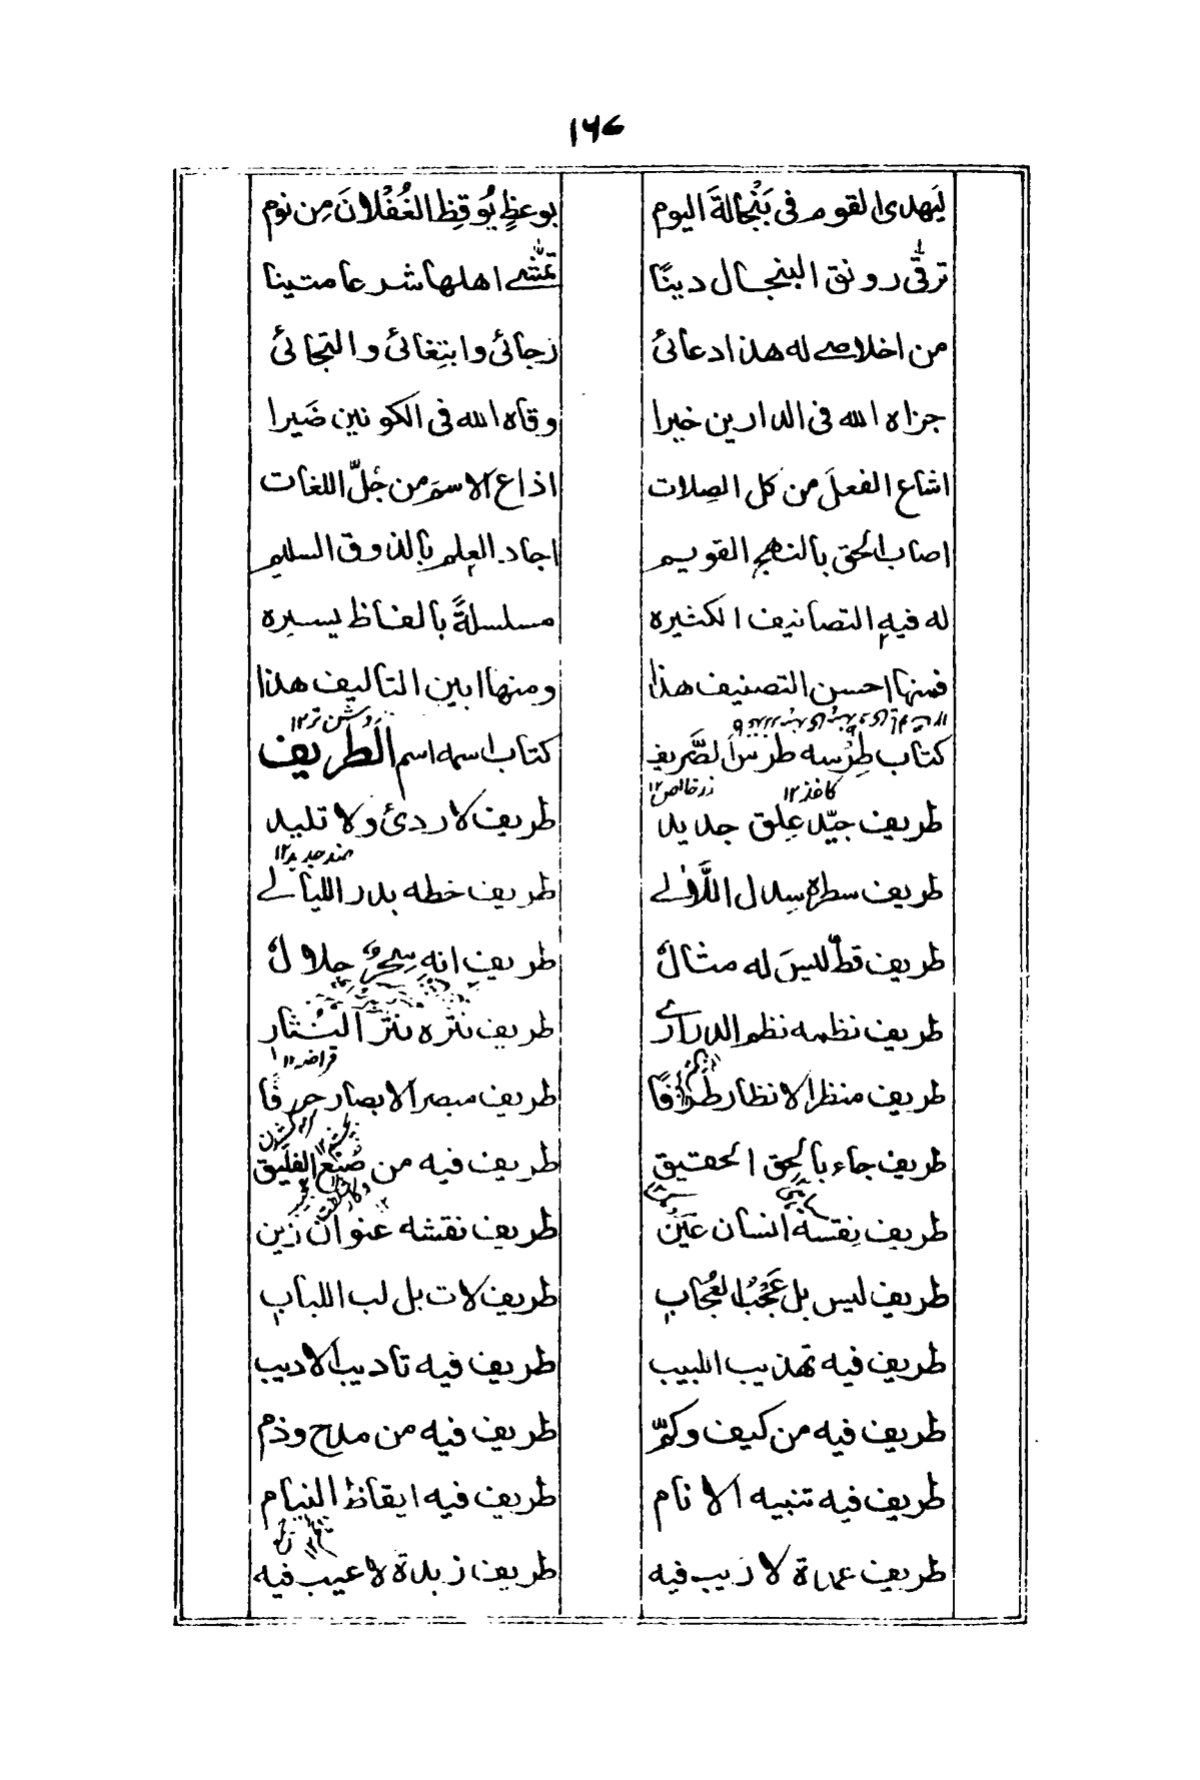 ۱۶۷
لِيَهدى القوم فى بَنْجالةَ اليوم
بوعظٍ يُوقِظ الغُفْلانَ مِن نوم
ترقّى رونق البنجال دينًا
تمشّے اهلها شرعا متينا
من اخلاصے له هذا دعائى
رجائى وابتِغائى والتجائى
جزاه الله فى الدارين خيرا
وقاه الله فى الكونين ضَيرا
اشاع الفعلَ من كل الصِلات
اذاع الاسمَ من جُلّ اللغات
اصاب الحق بالنهج القويم
اجاد العلم بالذوق السليم
له فيه التصانيف الكثيره
مسلسلةً بالفاظ يسيره
فمنها احسن التصنيف هذا
ومنها ابين التاليف هذا
روشن تر ۱۲
كتاب طِرْسه طرس الصَّريف
كتاب اسمه اسم الطَريف
كاغذ ۱۲
زر خالص ۱۲
طريف جيّد عِلق جديد
طريف لا ردئ ولا تليد
ضد جديد ۱۲
طريف سطره سِدل اللَّالے
طريف خطه بدر الليالے
طريف قطّ ليسَ له مثالٌ
طريف انه سِحرٌ حلالٌ
طريف نظمه نظم الدرارے
طريف نثره نثر النُثار
قراضه ۱۲
طريف منظر الانظار طَرْفًا
طريف مبصر الابصار حرفا
طريف جاء بالحق الحقيق
طريف فيه من صُنع الفليق
طريف نِقسه انسان عَينٌ
طريف نقشه عنوان زين
طريف ليس بل عَجْبُ العُجاب
طريف لات بل لب اللباب
طريف فيه تهذيب اللبيب
طريف فيه تاديب الاديب
طريف فيه من كيف وكمّ
طريف فيه من مدح وذم
طريف فيه تنبيه الانام
طريف فيه ايقاظ النيام
طريف عمدة لا ريب فيه
طريف زبدة لا عيب فيه